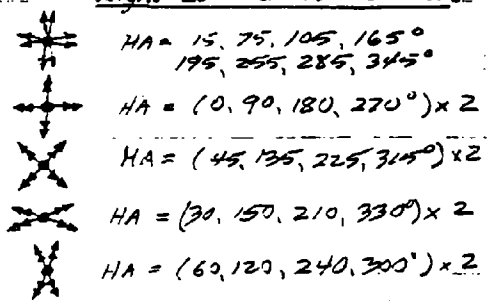 HA = 15, 75, 105, 165°
195, 255, 285, 345°
HA = (0, 90, 180, 270°) x 2
HA = (45, 135, 225, 315°) x 2
HA = (30, 150, 210, 330°) x 2
HA = (60, 120, 240, 300°) x 2